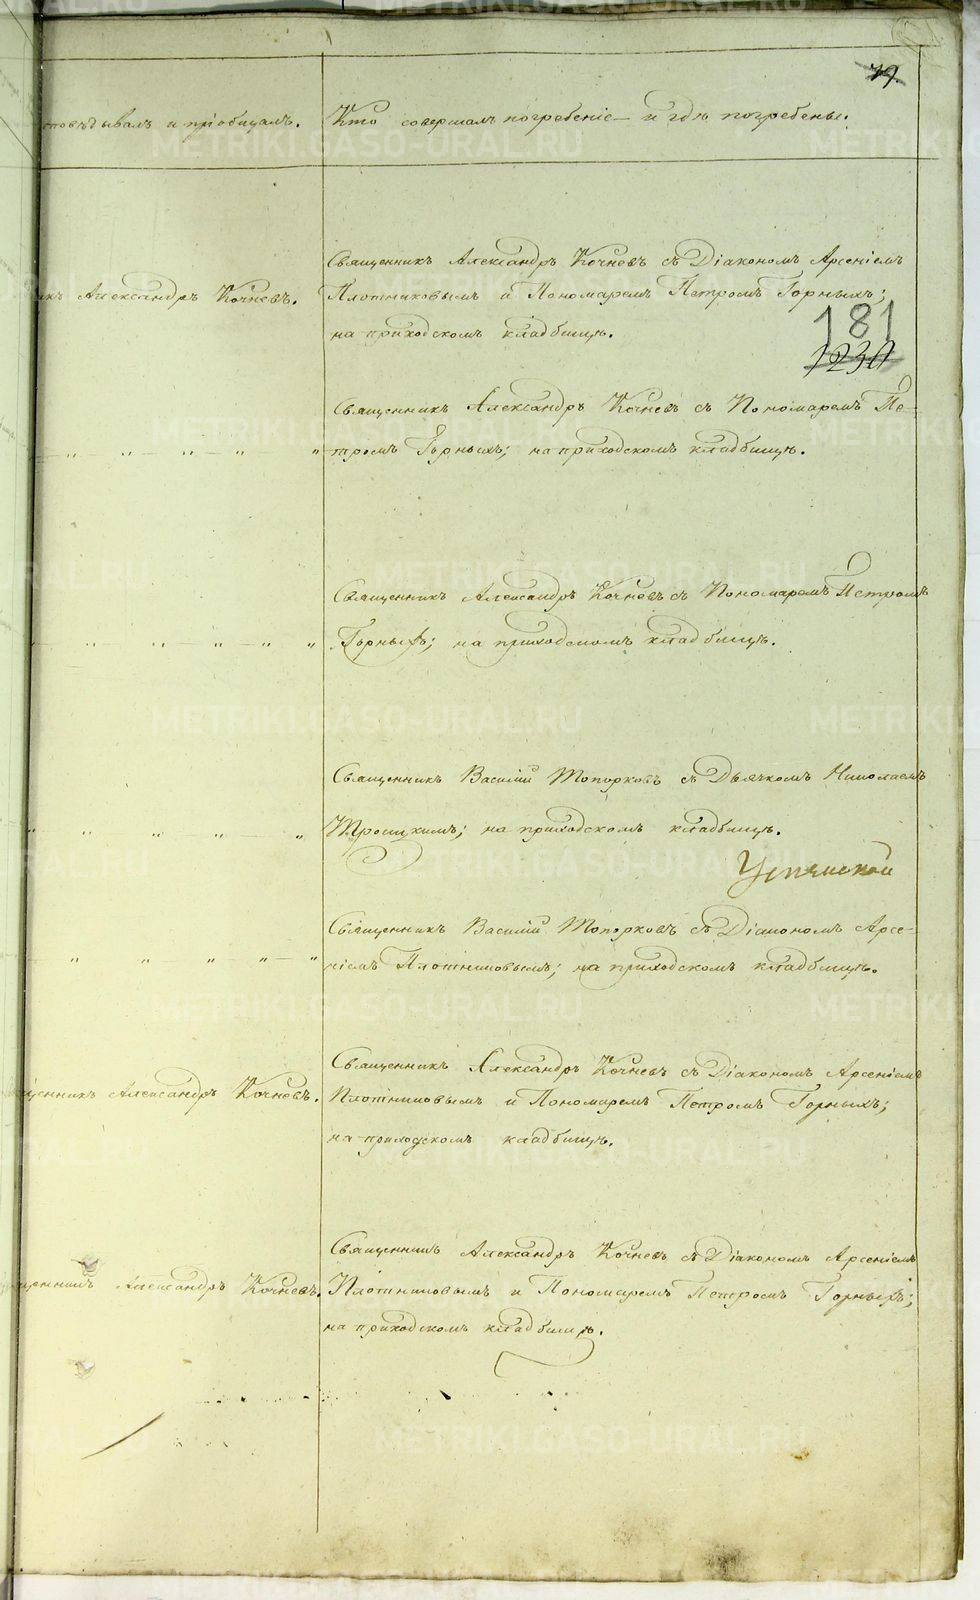 79.
исповѣдывалъ и пріобщалъ. Кто совершалъ погребеніе и гдѣ погребены.
Священникъ Александръ Кочневъ съ Діакономъ Арсеніемъ
Александръ Кочневъ. Плотниковымъ и Пономаремъ Петромъ Горныхъ;
на приходскомъ кладбищѣ.
181
1230
Священникъ Александръ Кочневъ съ Пономаремъ Пе-
" — " — " — " " тромъ Горныхъ; на приходскомъ кладбищѣ.
Священникъ Александръ Кочневъ съ Пономаремъ Петромъ
" — " — " — " " Горныхъ; на приходскомъ кладбищѣ.
Священникъ Василій Топорковъ съ Дьячкомъ Николаемъ
" " " " — " Троицкимъ; на приходскомъ кладбищѣ.
Успенской
Священникъ Василій Топорковъ съ Діакономъ Арсе-
" " " " — " ніемъ Плотниковымъ; на приходскомъ кладбищѣ.
Священникъ Александръ Кочневъ съ Діакономъ Арсеніемъ
Священникъ Александръ Кочневъ. Плотниковымъ и Пономаремъ Петромъ Горныхъ;
на приходскомъ кладбищѣ.
Священникъ Александръ Кочневъ съ Діакономъ Арсеніемъ
Священникъ Александръ Кочневъ. Плотниковымъ и Пономаремъ Петромъ Горныхъ;
на приходскомъ кладбищѣ.
METRIKI.GASO-URAL.RU